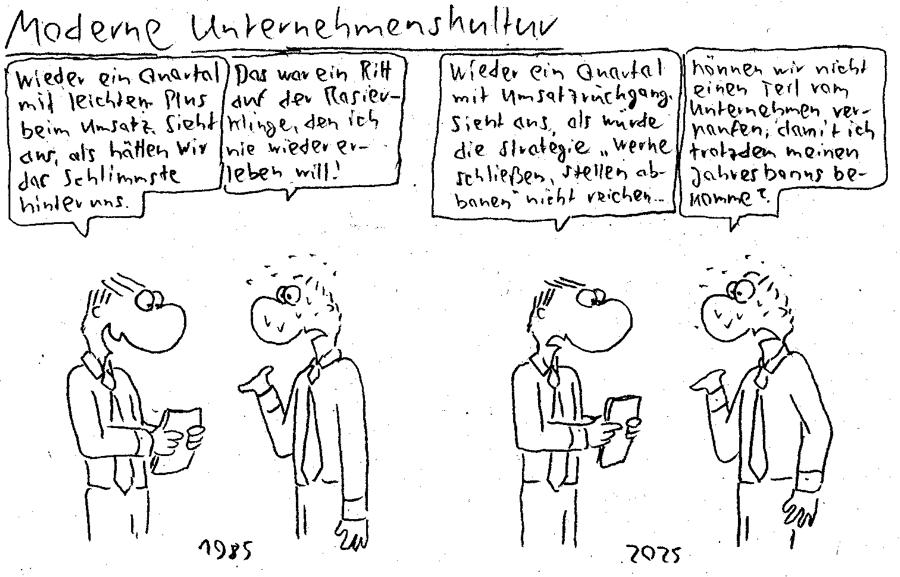 Moderne Unternehmenskultur
Wieder ein Quartal
mit leichtem Plus
beim Umsatz. Sieht
aus, als hätten wir
das Schlimmste
hinter uns.
Das war ein Ritt
auf der Rasier-
klinge, den ich
nie wieder er-
leben will!
Wieder ein Quartal
mit Umsatzrückgang.
Sieht aus, als würde
die Strategie „Werke
schließen, Stellen ab-
bauen" nicht reichen...
Können wir nicht
einen Teil vom
Unternehmen ver-
kaufen, damit ich
trotzdem meinen
Jahresbonus be-
komme?
1985
2025